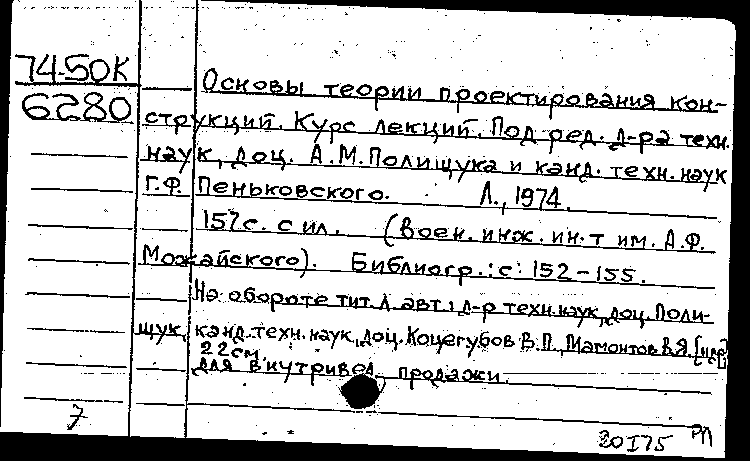 74-50К
6280
Основы теории проектирования кон-
струкций. Курс лекций. Под ред. д-ра техн.
наук, доц. А.М.Полищука и канд. техн. наук
Г.Ф. Пеньковского. Л., 1974.
157с. с ил. (Воен. инж. ин-т им. А.Ф.
Можайского). Библиогр.: с. 152-155.
На обороте тит. л. авт.: д-р техн. наук, доц. Поли-
щук, канд. техн. наук, доц. Коцегубов В.П., Мамонтов В.Я. [и др.]
22см.
Для внутривед. продажи.
7
20I75 РП